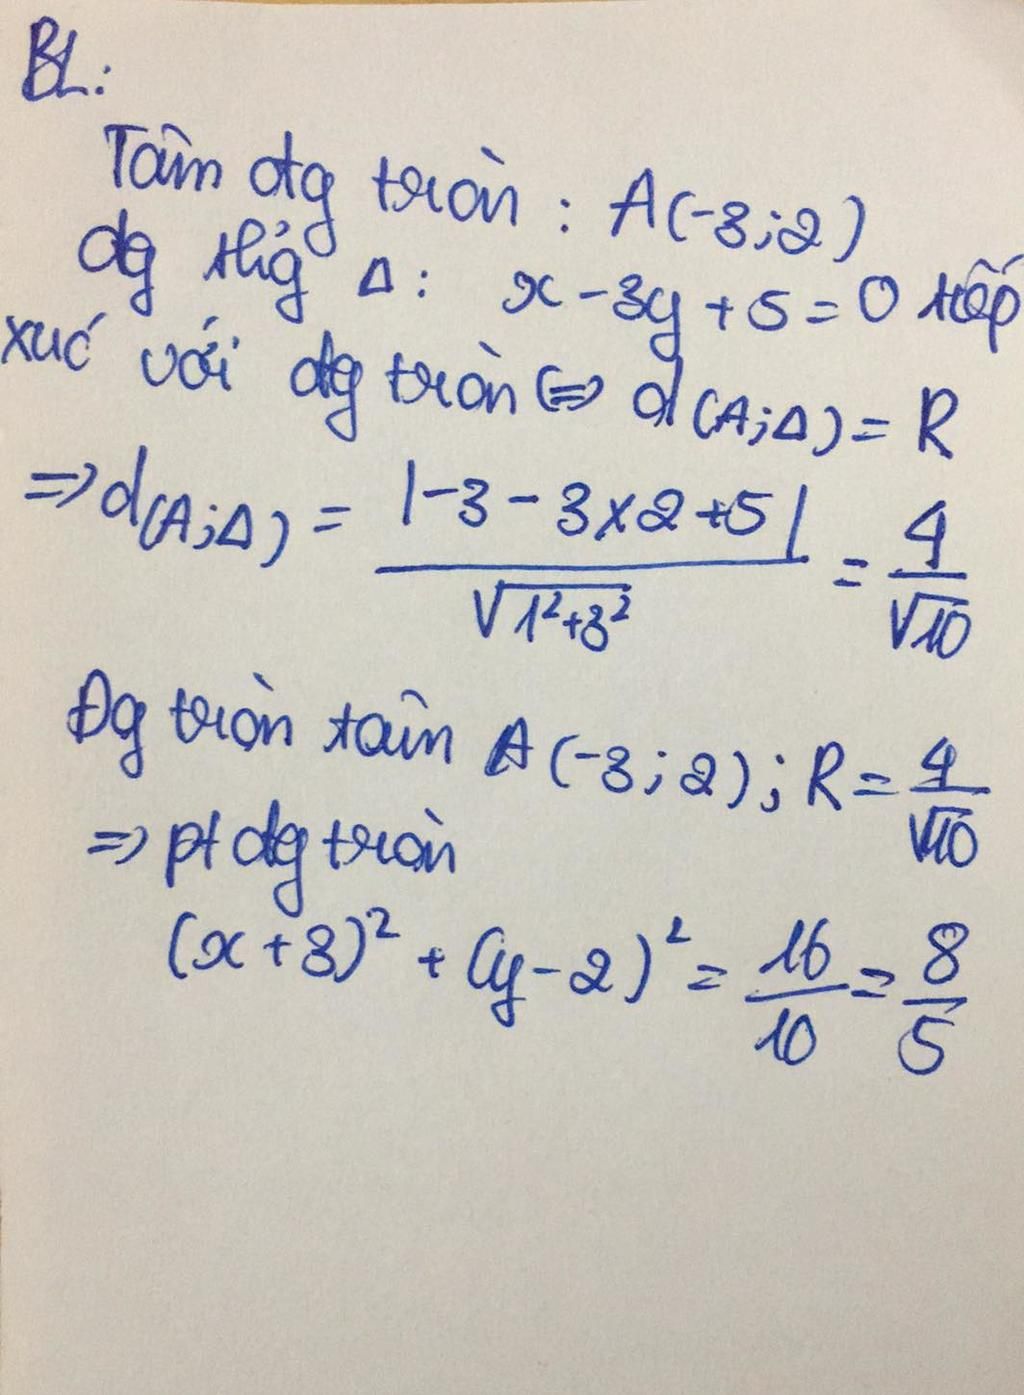 BL:
Tâm đtg tròn : A(-3;2)
đg thg̉ Δ: x - 3y + 5 = 0 tiếp
xúc với đtg tròn ⇔ d(A;Δ) = R
⇒ d(A;Δ) = |-3 - 3x2 +5| / √1²+3² = 4/√10
Đg tròn tâm A(-3;2); R = 4/√10
⇒ pt đtg tròn
(x + 3)² + (y - 2)² = 16/10 = 8/5